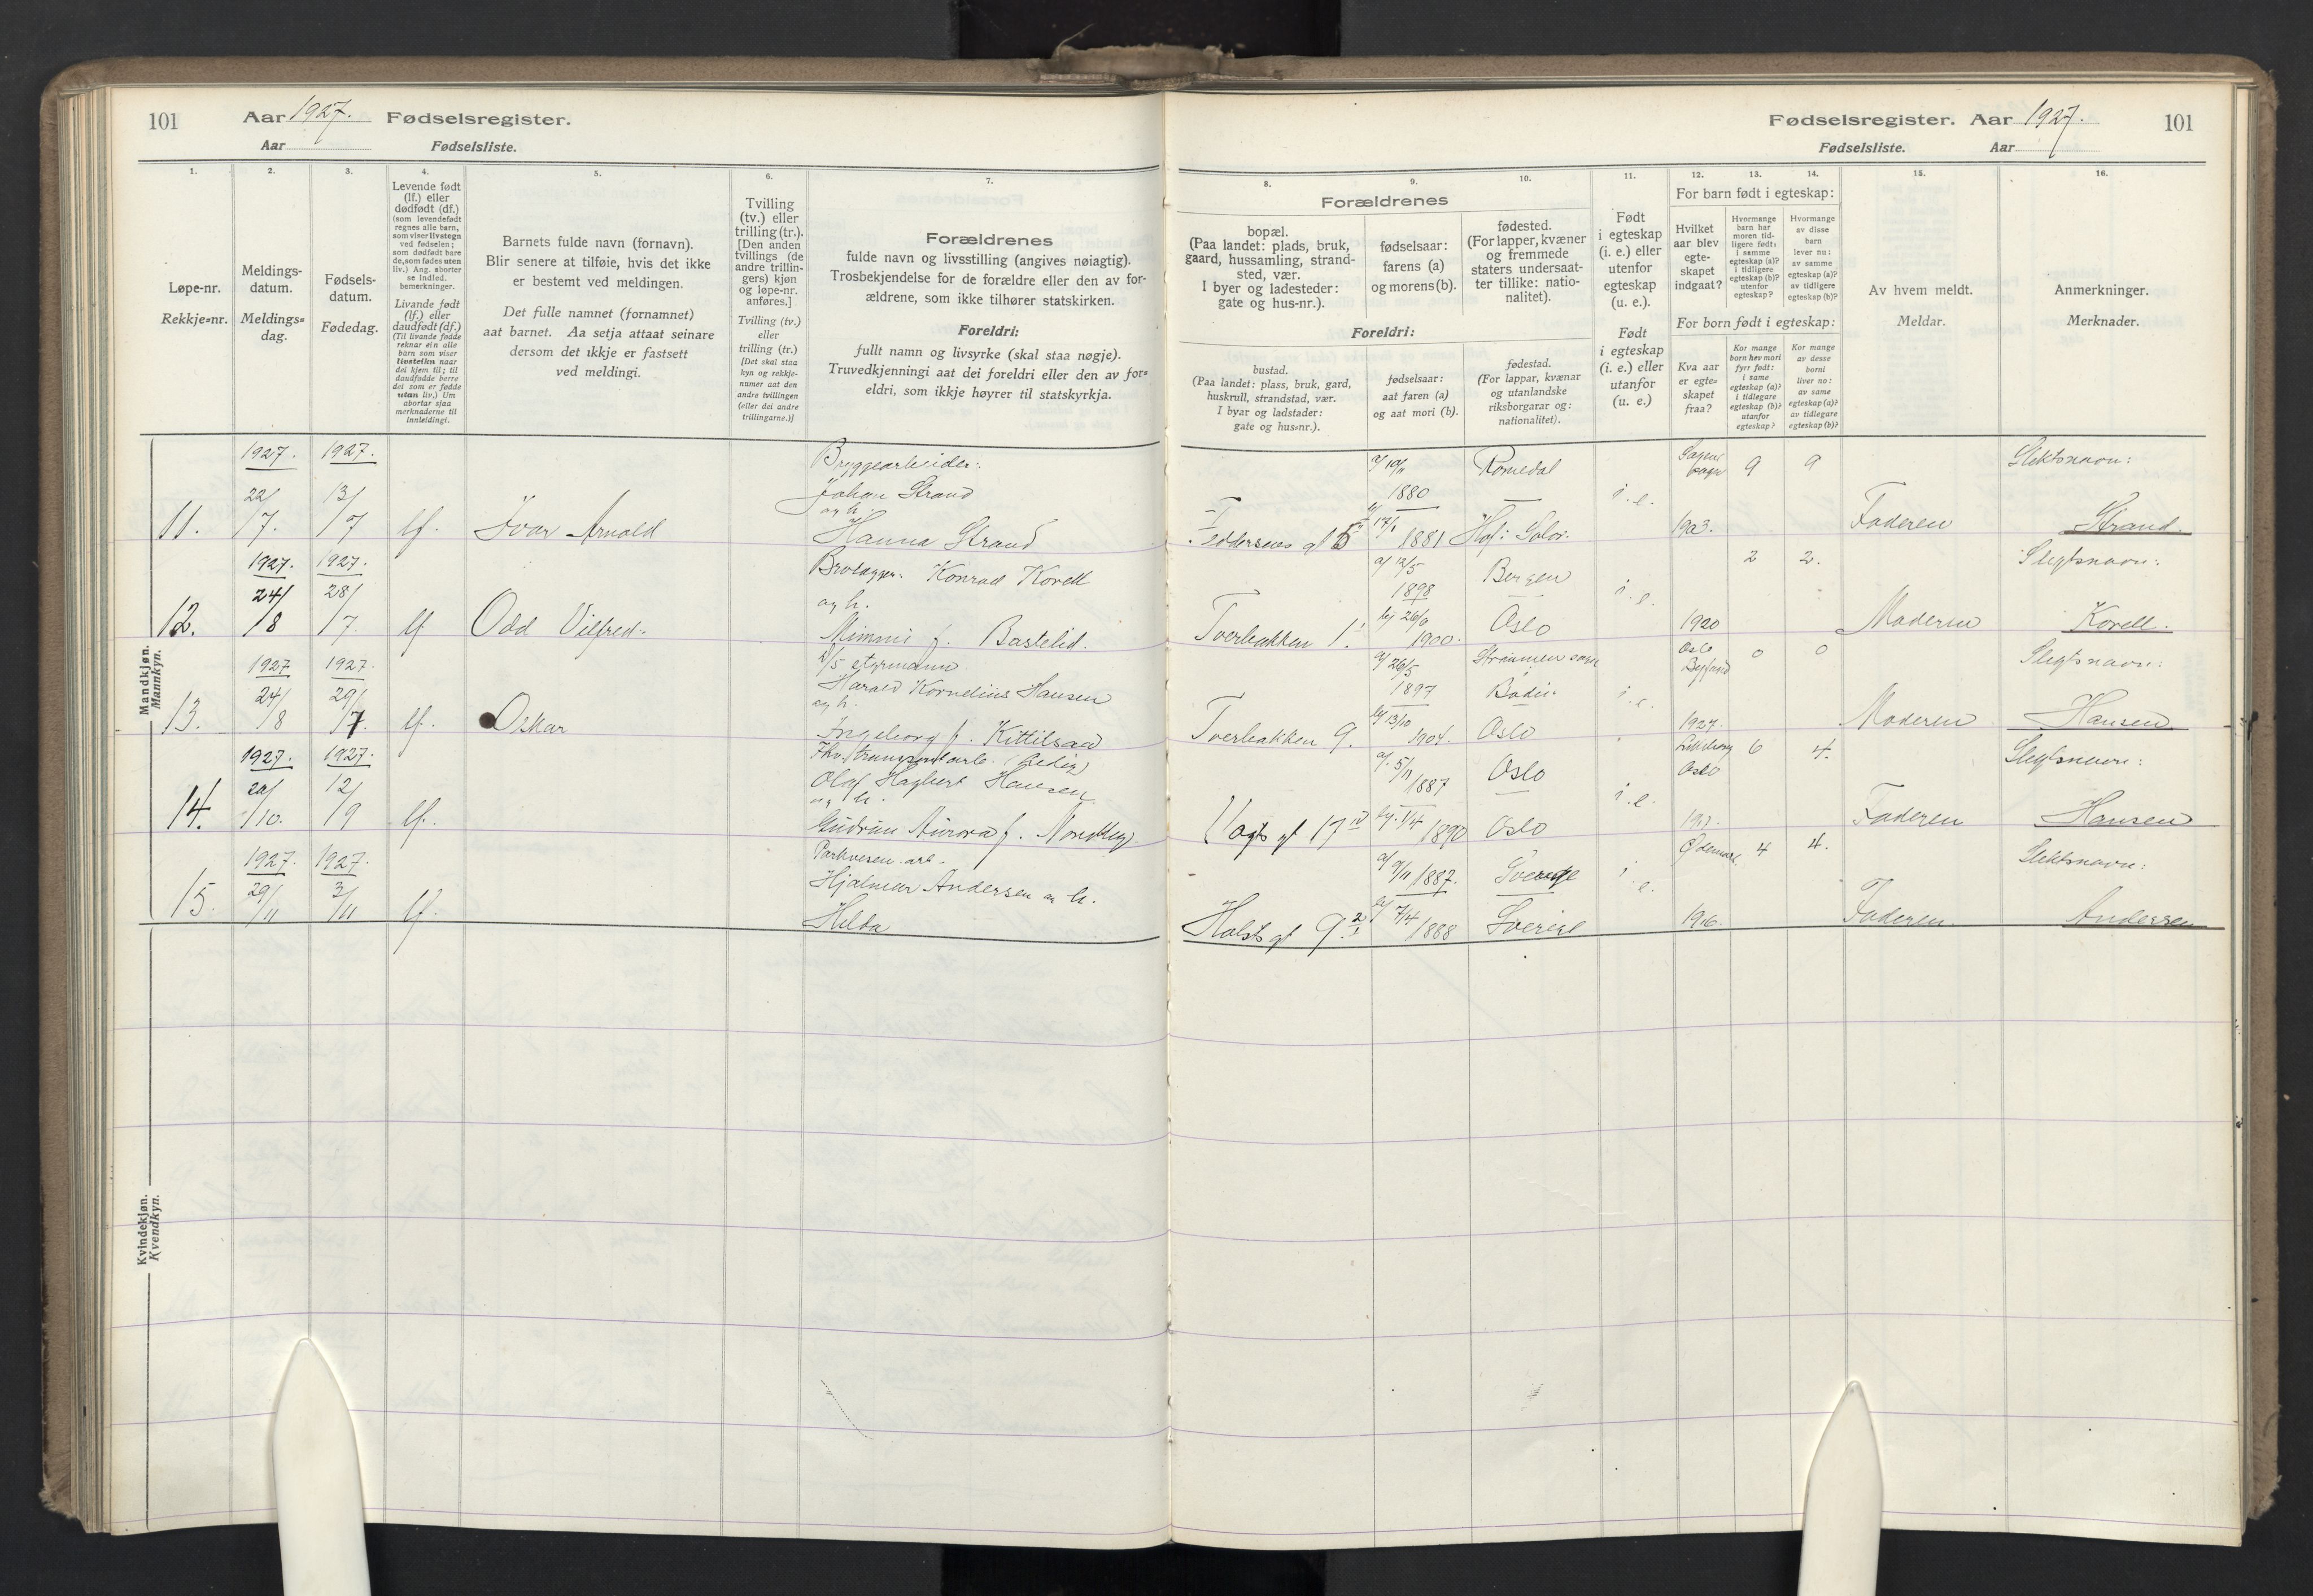 101
Aar 1927. Fødselsregister.
Aar Fødselsliste.
Fødselsregister. Aar 1927.
101
Fødselsliste. Aar
1.
Løpe-nr.
Rekkje=nr.
2.
Meldings-
datum.
Meldings=
dag.
3.
Fødsels-
datum.
Fødedag.
4.
Levende født
(lf.) eller
dødfødt (df.)
(som levendefødt
regnes alle barn,
som viser livstegn
ved fødselen;
som dødfødt bare
de, som fødes uten
liv.) Ang. aborter
se indled.
bemerkninger.
Livande født
(lf.) eller
daudfødt (df.)
(Til livande fødde
reknar ein alle
barn som viser
livsteikn naar
dei kjem til; til
daudfødde berre
dei som er fødde
utan liv.) Um
abortar sjaa
merknaderne til
innleidingi.
5.
Barnets fulde navn (fornavn).
Blir senere at tilføie, hvis det ikke
er bestemt ved meldingen.
Det fulle namnet (fornamnet)
aat barnet. Aa setja attaat seinare
dersom det ikkje er fastsett
ved meldingi.
6.
Tvilling
(tv.) eller
trilling (tr.).
[Den anden
tvillings (de
andre trillin-
gers) kjøn
og løpe-nr.
anføres.]
Tvilling (tv.)
eller
trilling (tr.)
[Det skal staa
kyn og rekkje-
numer aat den
andre tvillingen
(eller dei andre
trillingarne.)]
7.
Forældrenes
fulde navn og livsstilling (angives nøiagtig).
Trosbekjendelse for de forældre eller den av for-
ældrene, som ikke tilhører statskirken.
Foreldri:
fullt namn og livsyrke (skal staa nøgje).
Truvedkjenningi aat dei foreldri eller den av for=
eldri, som ikkje høyrer til statskyrkja.
Forældrenes
8.
bopæl.
(Paa landet: plads, bruk,
gaard, hussamling, strand-
sted, vær.
I byer og ladesteder:
gate og hus-nr.).
9.
fødselsaar:
farens (a)
og morens (b).
10.
fødested.
(For lapper, kvæner
og fremmede
staters undersaat-
ter tillike: natio-
nalitet).
Foreldri:
bustad.
(Paa landet: plass, bruk, gard,
huskrull, strandstad, vær.
I byar og ladstader:
gate og hus=nr.).
fødselsaar:
aat faren (a)
og aat mori (b).
fødestad.
(For lappar, kvænar
og utanlandske
riksborgarar og:
nationalitet).
11.
Født
i egteskap
(i. e.) eller
utenfor
egteskap
(u. e.).
Født
i egteskap
(i. e.) eller
utanfor
(u. e.)
12. 13. 14.
For barn født i egteskap:
Hvilket
aar blev
egte-
skapet
indgaat?
Hvormange
barn har
moren tid-
ligere født:
i samme
egteskap (a)?
i tidligere
egteskap (b)?
utenfor
egteskap?
Hvormange
av disse
barn
lever nu:
av samme
egteskap (a)?
av tidligere
egteskap (b)?
For born født i egteskap:
Kva aar
er egte=
skapet
fraa?
Kor mange
born hev mori
fyrr født:
i same
egteskap (a)?
i tidlegare
egteskap (b)?
utanfor
egteskap?
Kor mange
av desse
borni
liver no:
av same
egteskap (a)?
av tidlegare
egteskap (b)?
15.
Av hvem meldt.
Meldar.
16.
Anmerkninger.
Merknader.
Mandkjøn.
Mannkyn.
1927. 1927.
11. 22/7. 13/7 lf. Ivar Arnold
Bryggearbeider.
Johan Strand
og h.
Hanna Strand
Feddersens gt 5
a/ 10/11 1880 Romedal
b/ 17/1 1881 Hof i Solør.
i. e. 1903. 9 9 Faderen
Slektsnavn:
Strand.
1927. 1927.
12. 24/8 28/7. lf. Odd Vilfred.
Konrad Korell
og h.
Mimmi f. Bastelid.
Tverbakken 1.
a/ 12/5 1898 Bergen
1900. Oslo
i. e. 1920 2 2. Moderen
Slegtsnavn:
Korell.
1927 1927.
13. 24/8 29/7. lf. Oskar
styrmann
Harald Kornelius Hansen
og h.
Ingeborg f. Kittilsaa
Tverbakken 9.
a/ 26/5 1897 Bodin
b/ 13/10 1904. Oslo
i. e. Oslo 1927. 0 0 Moderen
Slegtsnavn:
Hansen
1927. 1927.
14. /10. 12/9 lf.
Olaf Hagbert Hansen
og h.
Gudrun Aurora f.
Vogts gt 17 IV
a. 5/11 1887 Oslo
1890 Oslo
i. e. Oslo 6 4. Faderen
Slegtsnavn:
Hansen
1927. 1927.
15. 29/11 3/11 lf.
Parkvesen. arb.
Hjalmar Andersen og h.
Hilda
Holsts gt 9.
a/ 9/11 1887. Sverige
b/ 7/4 1888 Sverige
i. e. 1916. 4 4. Faderen
Slektsnavn:
Andersen
Kvindekjøn.
Kvendkyn.